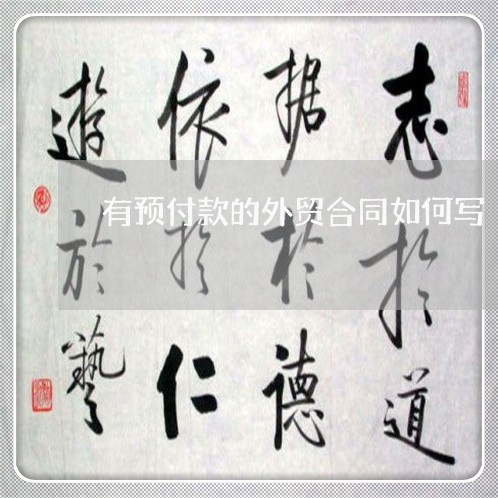 志於道
据於德
依於仁
遊於藝
有预付款的外贸合同如何写